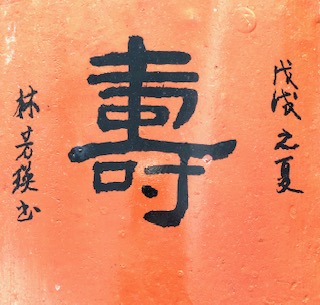 戊戌之夏
壽
林芳瑛书